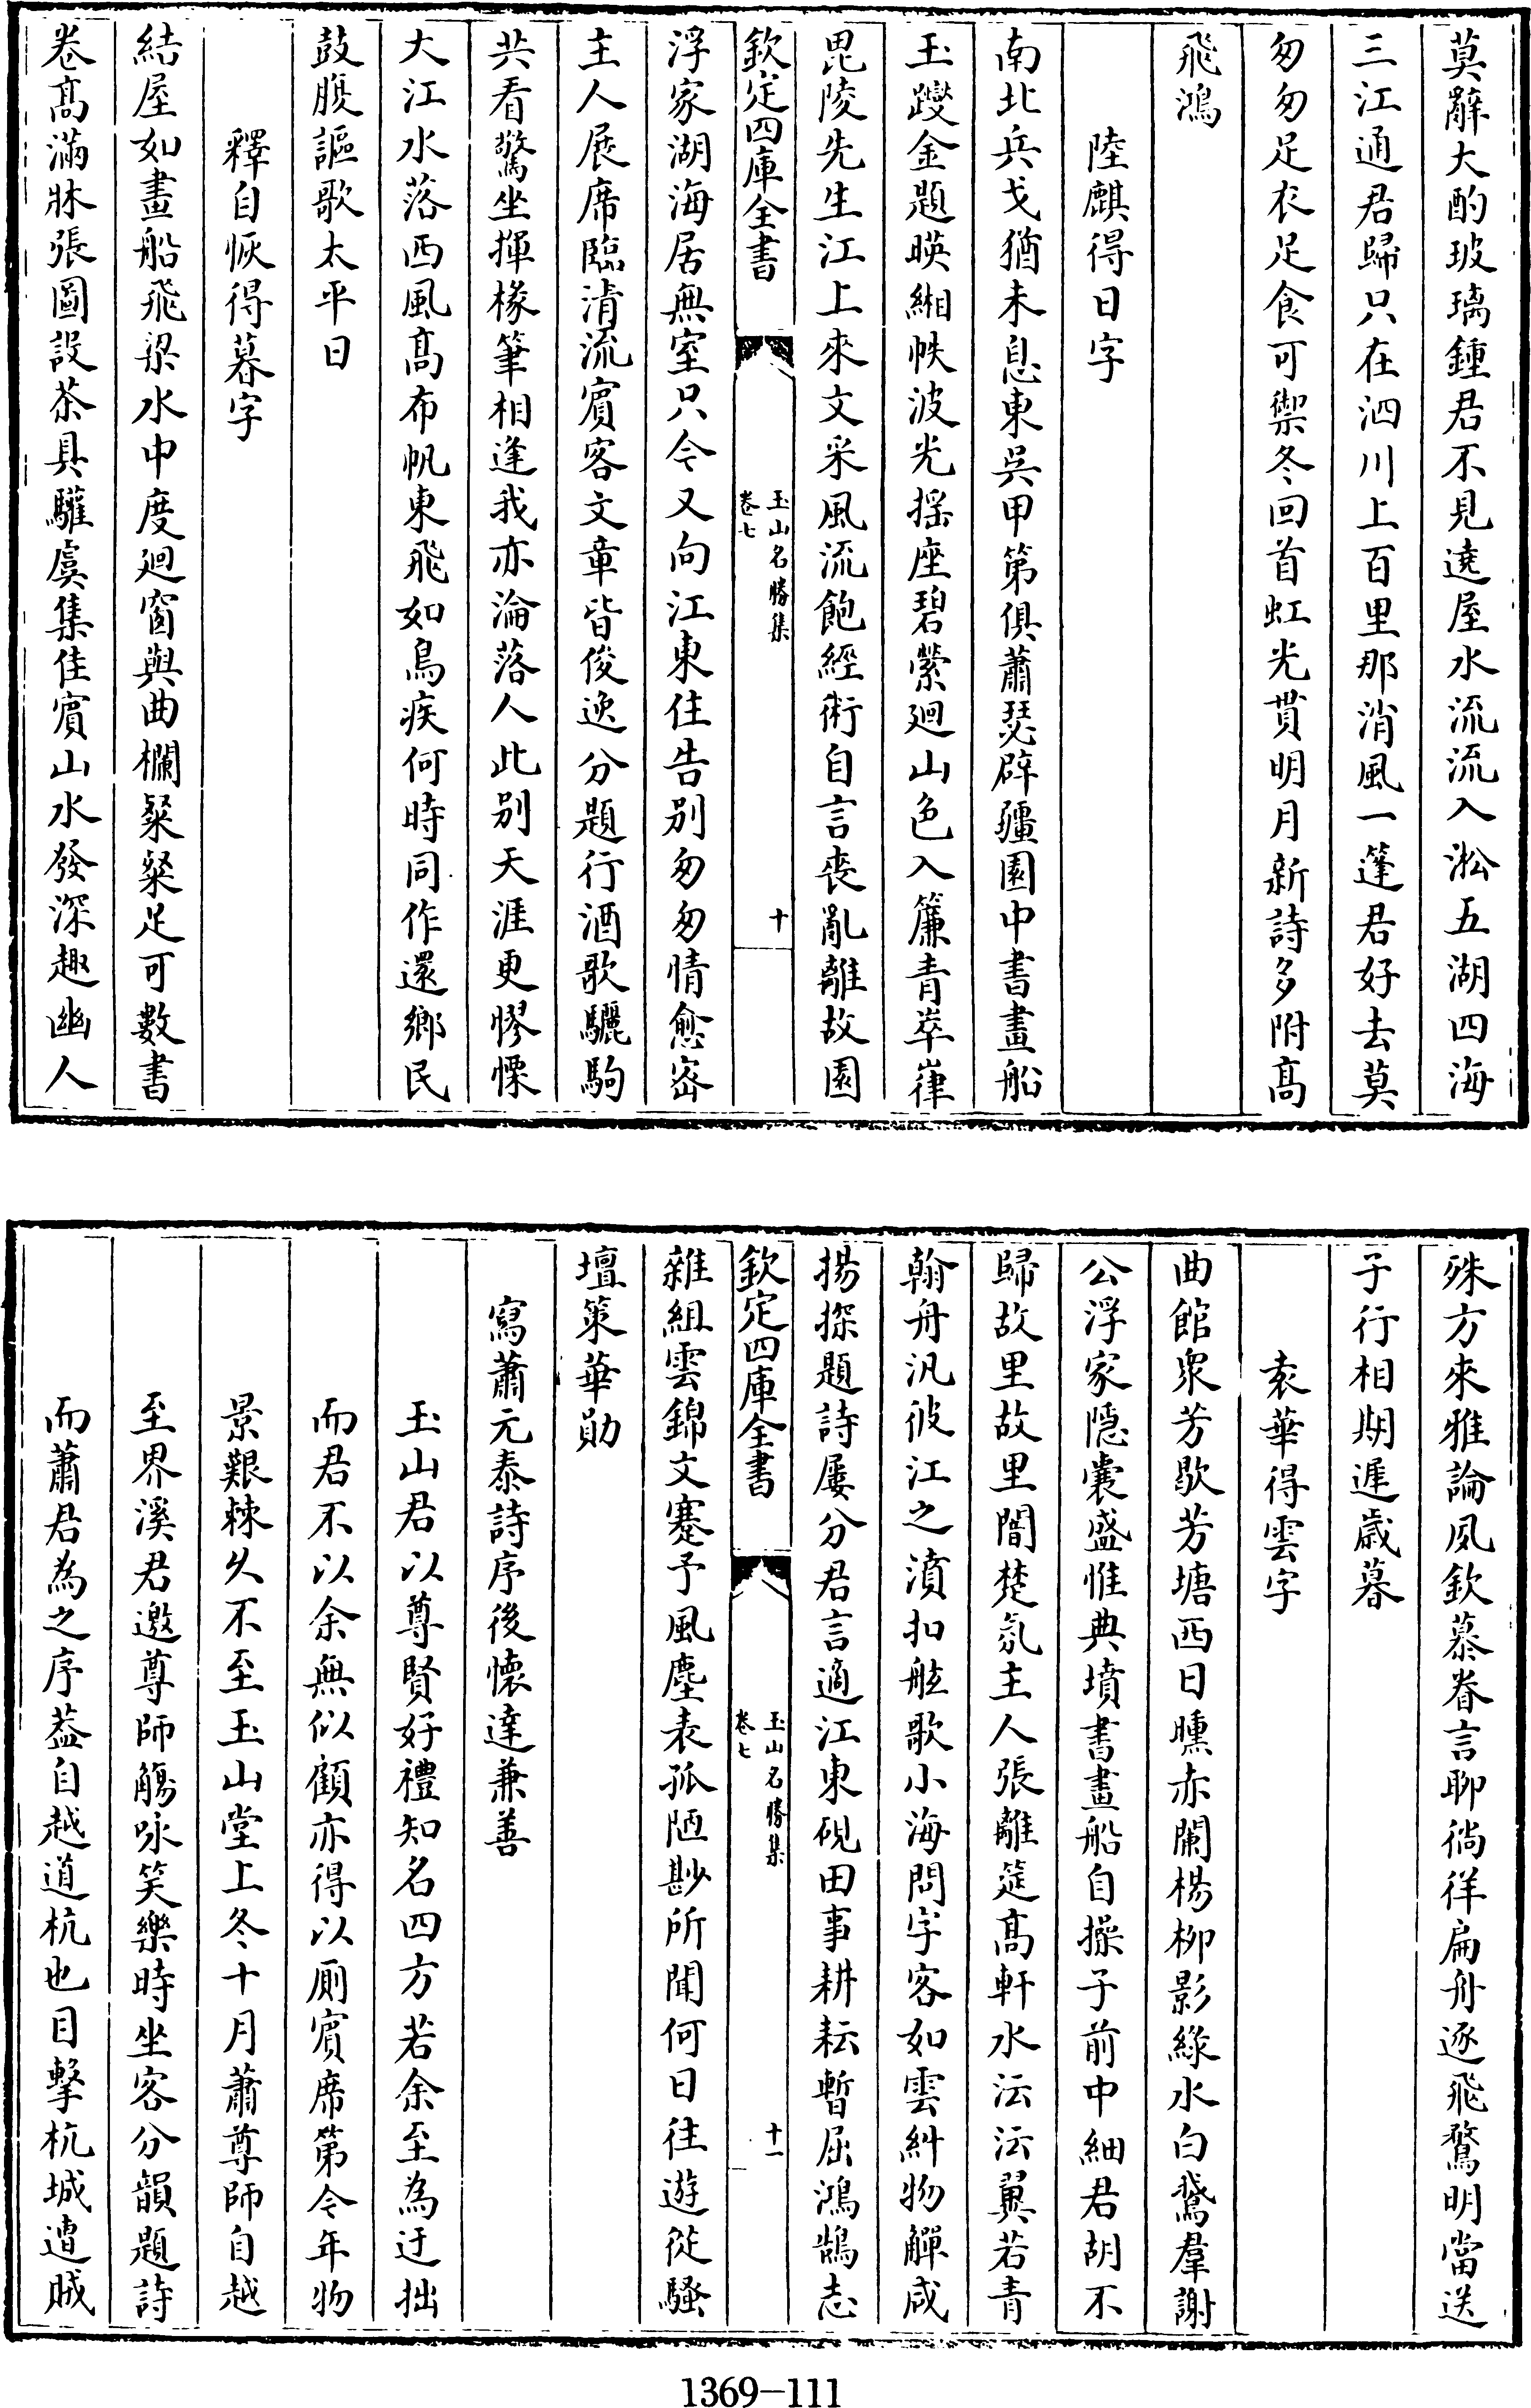 莫辭大酌玻璃鍾君不見遶屋水流流入淞五湖四海
三江通君歸只在泗川上百里那消風一蓬君好去莫
匆匆足衣足食可禦冬回首虹光貫明月新詩多附髙
飛鴻
陸麒得日字
南北兵戈猶未息東吳甲第俱蕭瑟辟疆園中書畫船
玉躞金題暎緗帙波光揺座碧縈廻山色入簾青崒嵂
毘陵先生江上來文采風流飽經術自言喪亂離故園
欽定四庫全書
玉山名勝集
卷七
十
浮家湖海居無室只今又向江東住告别匆匆情愈宻
主人展席臨清流賓客文章皆俊逸分題行酒歌驪駒
共看驚坐揮椽筆相逢我亦淪落人此别天涯更憀慄
大江水落西風髙布帆東飛如鳥疾何時同作還鄉民
鼓腹謳歌太平日
釋自恢得暮字
結屋如畫船飛梁水中度廻窗與曲欄粲粲足可數書
卷髙滿牀張圖設茶具驩虞集佳賓山水發深趣幽人
殊方來雅論夙欽慕眷言聊徜徉扁舟逐飛鶩明當送
子行相期遲歳暮
袁華得雲字
曲館衆芳歇芳塘西日曛赤闌楊柳影綠水白鵞羣謝
公浮家隠囊盛惟典墳書畫船自操子前中細君胡不
歸故里故里闇楚氛主人張離筵髙軒水沄沄翼若青
翰舟汎彼江之濆扣舷歌小海問字客如雲糾物觶咸
揚探題詩屢分君言適江東硯田事耕耘暫屈鴻鵠志
欽定四庫全書
玉山名勝集
卷七
十一
雜組雲錦文蹇予風塵表孤陋尠所聞何日往遊從騷
壇策華勛
寫蕭元泰詩序後懐達兼善
玉山君以尊賢好禮知名四方若余至為迂拙
而君不以余無似顧亦得以厠賓席第今年物
景艱棘久不至玉山堂上冬十月蕭尊師自越
至界溪君邀尊師觴咏笑樂時坐客分韻題詩
而蕭君為之序葢自越道杭也目擊杭城遭賊
1369-111